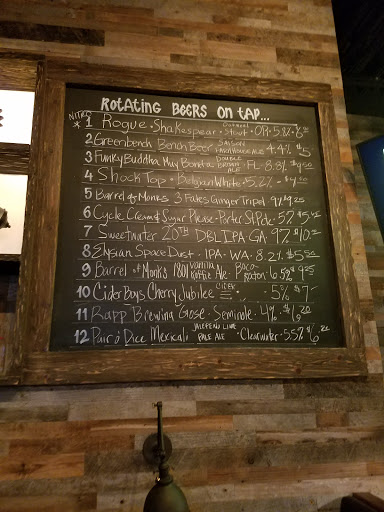 Rotating Beers on tap...
Nitro
* 1 Rogue · Shakespear · Oatmeal Stout · OR · 5.8%
2 Greenbench Bench Beer Saison Farmhouse Ale 4.4% $5
3 Funky Buddha Muy Bonita Double Brown Ale FL - 8.3%
4 Shock Top · Belgian White · 5.2%
5 Barrel of Monks 3 Fates Ginger Tripel 9%
6 Cycle Cream & Sugar Please · Porter St Pete · 5.7
7 Sweetwater 20TH DBL IPA GA 9% $10
8 Elysian Space Dust · IPA · WA · 8.2%
9 Barrel of Monks Vanilla Ale Boca Raton
10 Cider Boys Cherry Jubilee Cider 5% $7
11 Rapp Brewing Gose · Seminole · 4%
12 Pair o' Dice Mexicali Jalepeno Lime Pale Ale · Clearwater · 5.5%